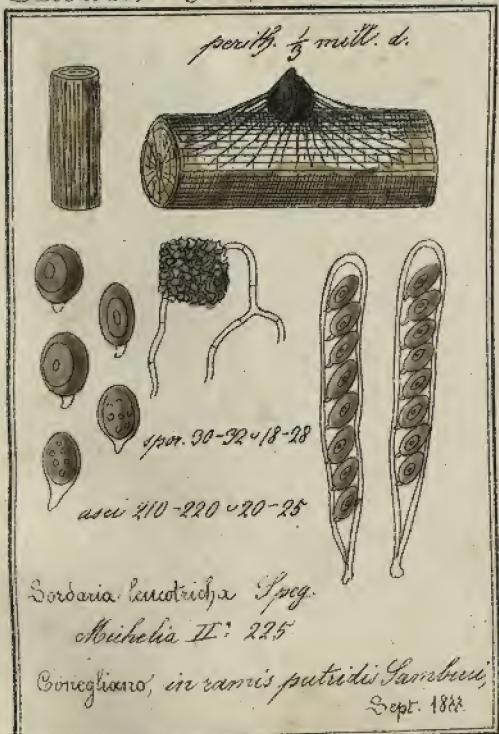 perith. 1/3 mill. d.
spor. 30-32 ᴗ 18-28
asci 210-220 ᴗ 20-25
Sordaria leucotricha Speg.
Michelia II: 225
Conegliano, in ramis putridis Sambuci,
Sept. 1877.